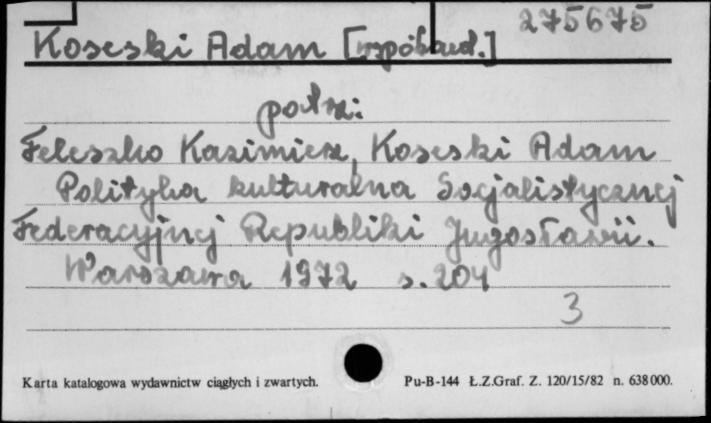 275675
Koseski Adam [współaut.]
patrz:
Feleszko Kazimierz, Koseski Adam
Polityka kulturalna Socjalistycznej
Federacyjnej Republiki Jugosławii.
Warszawa 1972 s. 204
3
Karta katalogowa wydawnictw ciągłych i zwartych. Pu-B-144 Ł.Z.Graf. Z. 120/15/82 n. 638000.